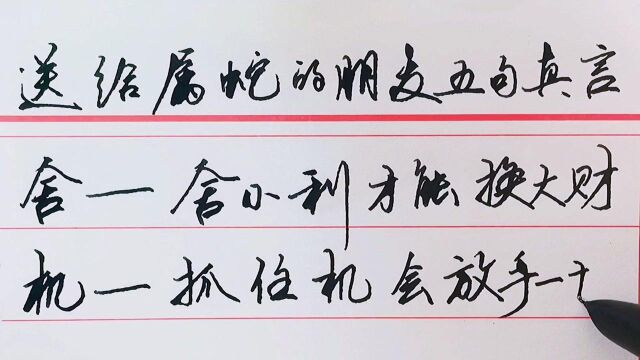 送给属蛇的朋友五句真言
舍一舍小利才能换大财
机一抓住机会放手一